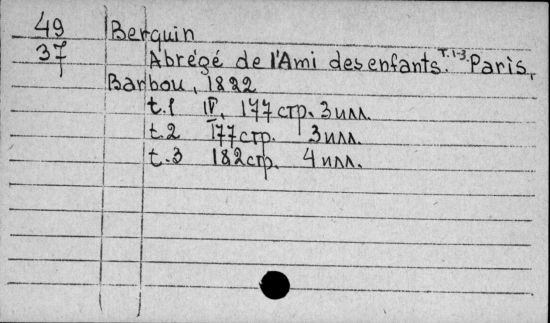 49 Berquin
37 Abrégé de l'Ami des enfants. T. 1-3. Paris,
Barbou, 1822
t.1 IV, 177 стр. 3 илл.
t.2 177 стр. 3 илл.
t.3 182 стр. 4 илл.